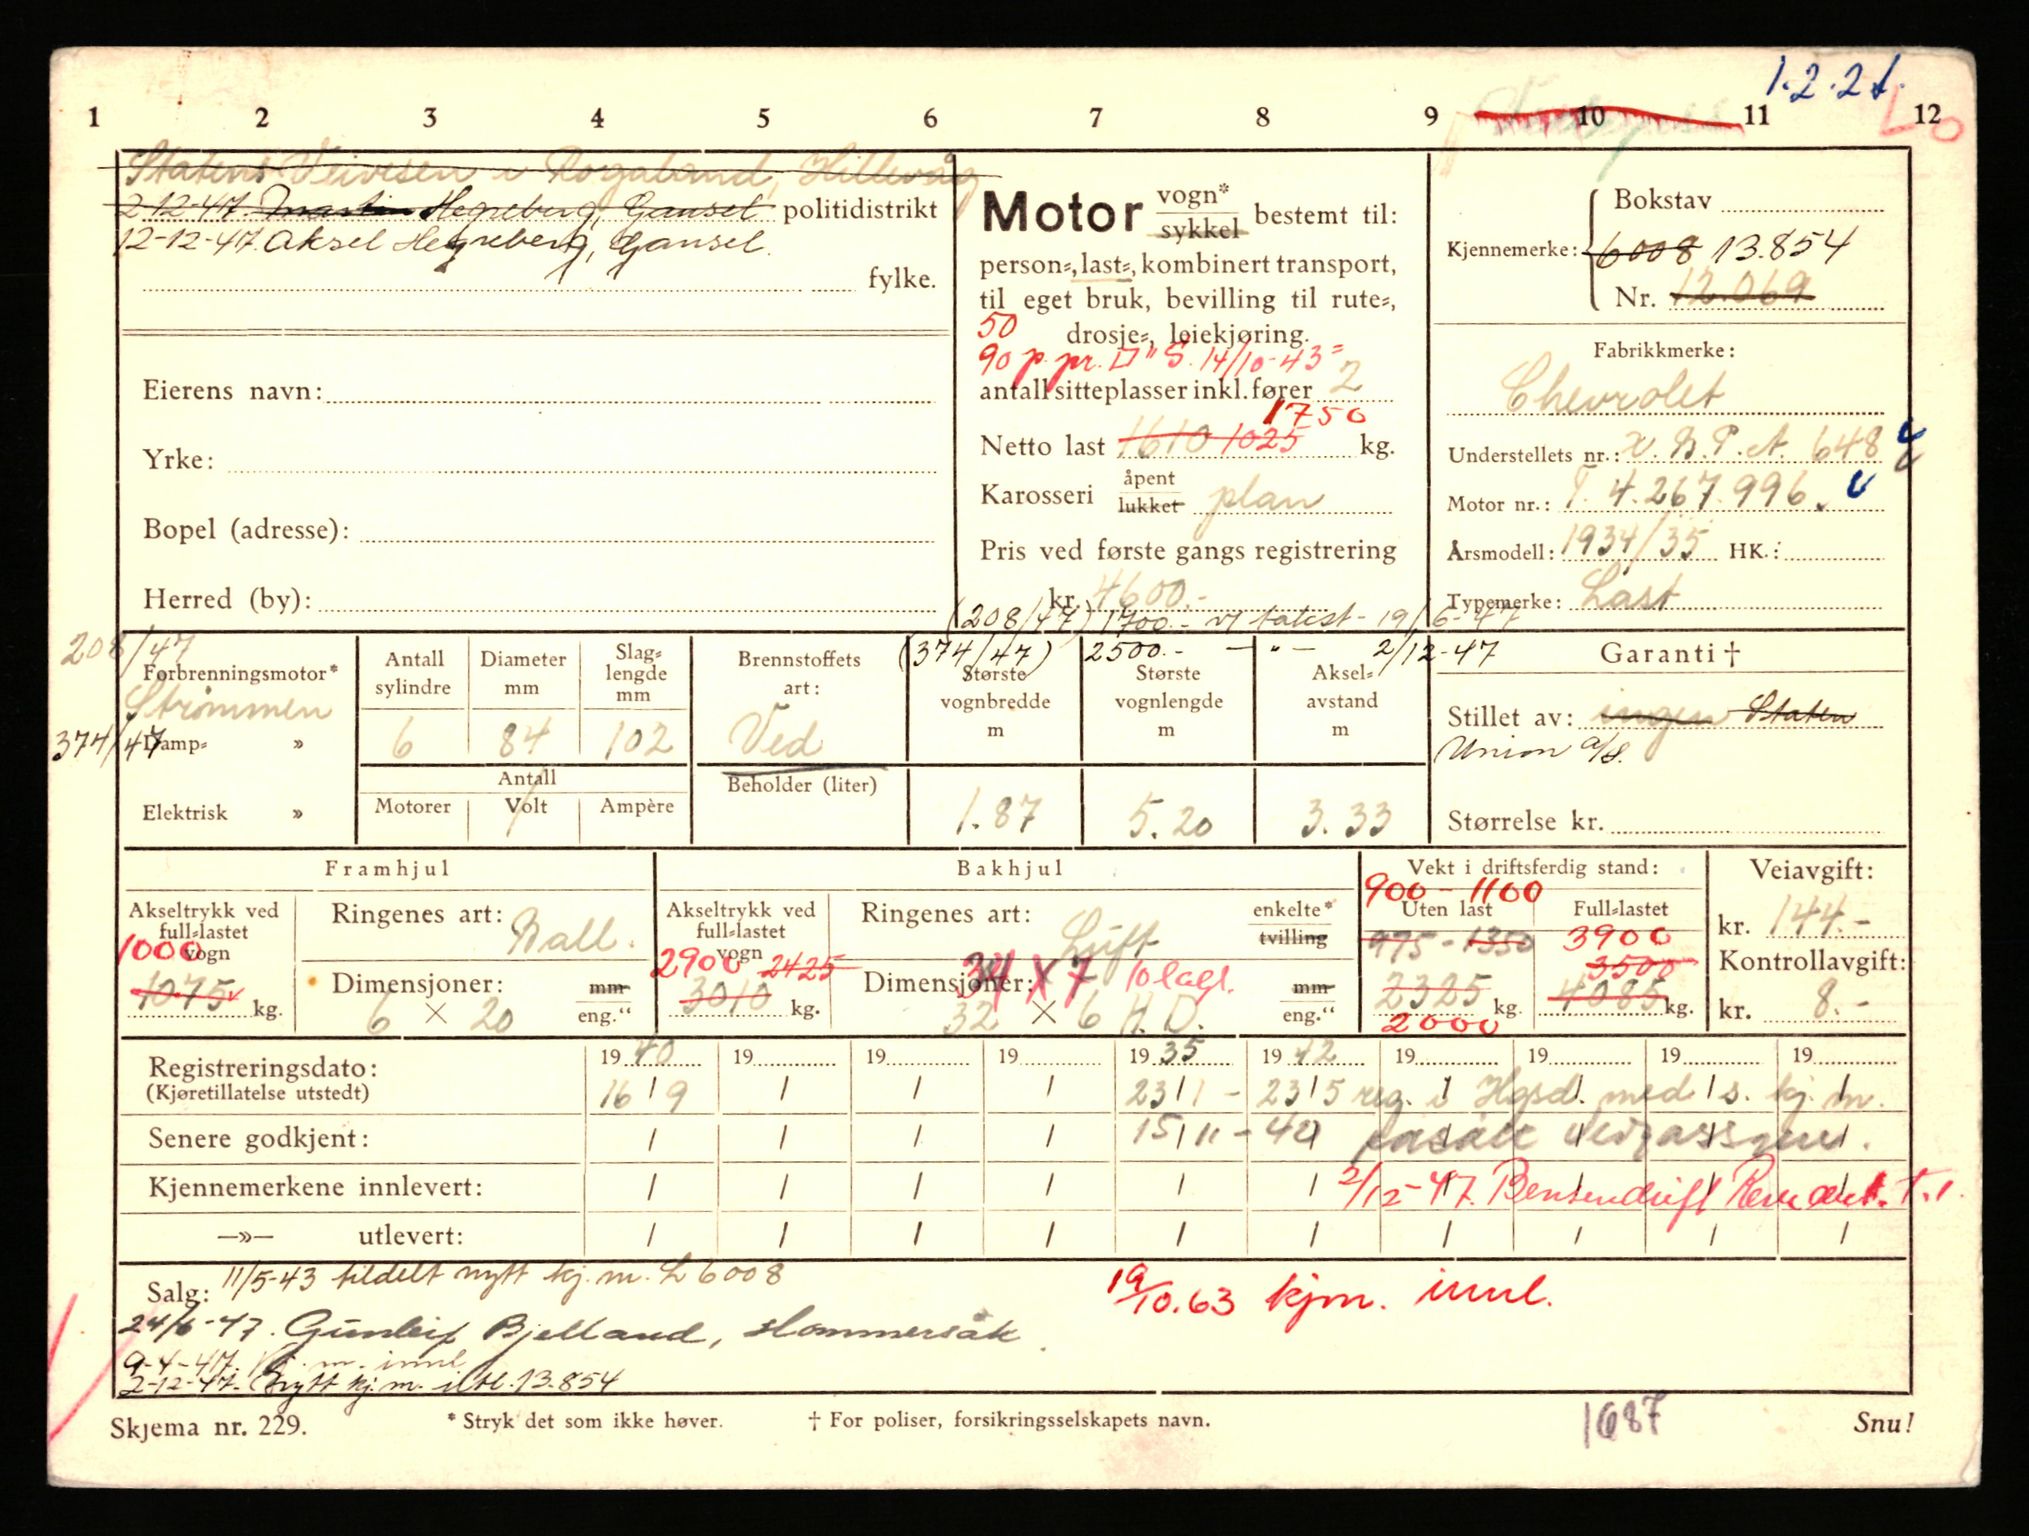 1.2.21.
1 2 3 4 5 6 7 8 9 10 11 12
Statens Veivesen i Rogaland, Hillevåg
2-12-47. Martin Hegreberg, Gansel politidistrikt
12-12-47. Aksel Hegreberg, Gansel.
fylke.
Eierens navn:
Yrke:
Bopel (adresse):
Herred (by):
Motor vogn* sykkel bestemt til:
person=, last=, kombinert transport,
til eget bruk, bevilling til rute=,
50 drosje=, leiekjøring.
90 p. pr. □" S. 14/10-43=
antall sitteplasser inkl. fører 2
1750
Netto last 1610 1025 kg.
Karosseri åpent lukket plan
Pris ved første gangs registrering
kr. 4600.-
(208/47) 1700.- v/ takst - 19/6-47
(374/47) 2500.- — " — 2/12-47
Bokstav
Kjennemerke: 6008 13.854
Nr. 12.069
Fabrikkmerke:
Chevrolet
Understellets nr.: X. B. P. A. 648
Motor nr.: T. 4.267.996.
Årsmodell: 1934/35 HK.:
Typemerke: Last
208/47
Forbrenningsmotor*
Strømmen
374/47
Damp= »
Elektrisk »
Antall sylindre
6
Diameter mm
84
Slag= lengde mm
102
Antall
Motorer Volt Ampère
Brennstoffets art:
Ved
Beholder (liter)
Største vognbredde m
1.87
Største vognlengde m
5.20
Aksel= avstand m
3.33
Garanti †
Stillet av: ingen Staten
Union a/s.
Størrelse kr.
Framhjul
Akseltrykk ved full=lastet vogn
1000
1075 kg.
Ringenes art: Ball.
Dimensjoner: mm
6 × 20 eng."
Bakhjul
Akseltrykk ved full=lastet vogn
2900 2425
3010 kg.
Ringenes art: Luft enkelte* tvilling
Dimensjoner: 34 x 7 10 lags. mm
32 × 6 H. D. eng."
Vekt i driftsferdig stand:
900 - 1100
Uten last
975 - 1350
2325 kg.
2000
Full=lastet
3900
3500
4085 kg.
Veiavgift:
kr. 144.-
Kontrollavgift:
kr. 8.-
Registreringsdato: 1940 19 19 19 1935 1942 19 19 19 19
(Kjøretillatelse utstedt) 16/9 / / / 23/1 - 23/5 reg. i Hgsd. med s. kj. m.
Senere godkjent: / / / / 15/11 - 40
Kjennemerkene innlevert: / / / / / / 2/12-47. Bensindrift
—»— utlevert: / / / / / / / / / /
Salg: 11/5-43 tildelt nytt kj. m. L 6008
19/10.63 kjm. innl.
24/6-47. Gunleif Bjelland, Hommersåk.
9-4-47. kj. m. innl.
2-12-47. Nytt kj. m. utl. 13.854
1687
Skjema nr. 229. * Stryk det som ikke høver. † For poliser, forsikringsselskapets navn. Snu!